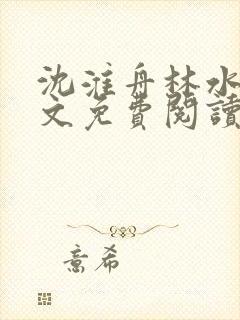 沈淮舟林水
文免費閱讀
意希